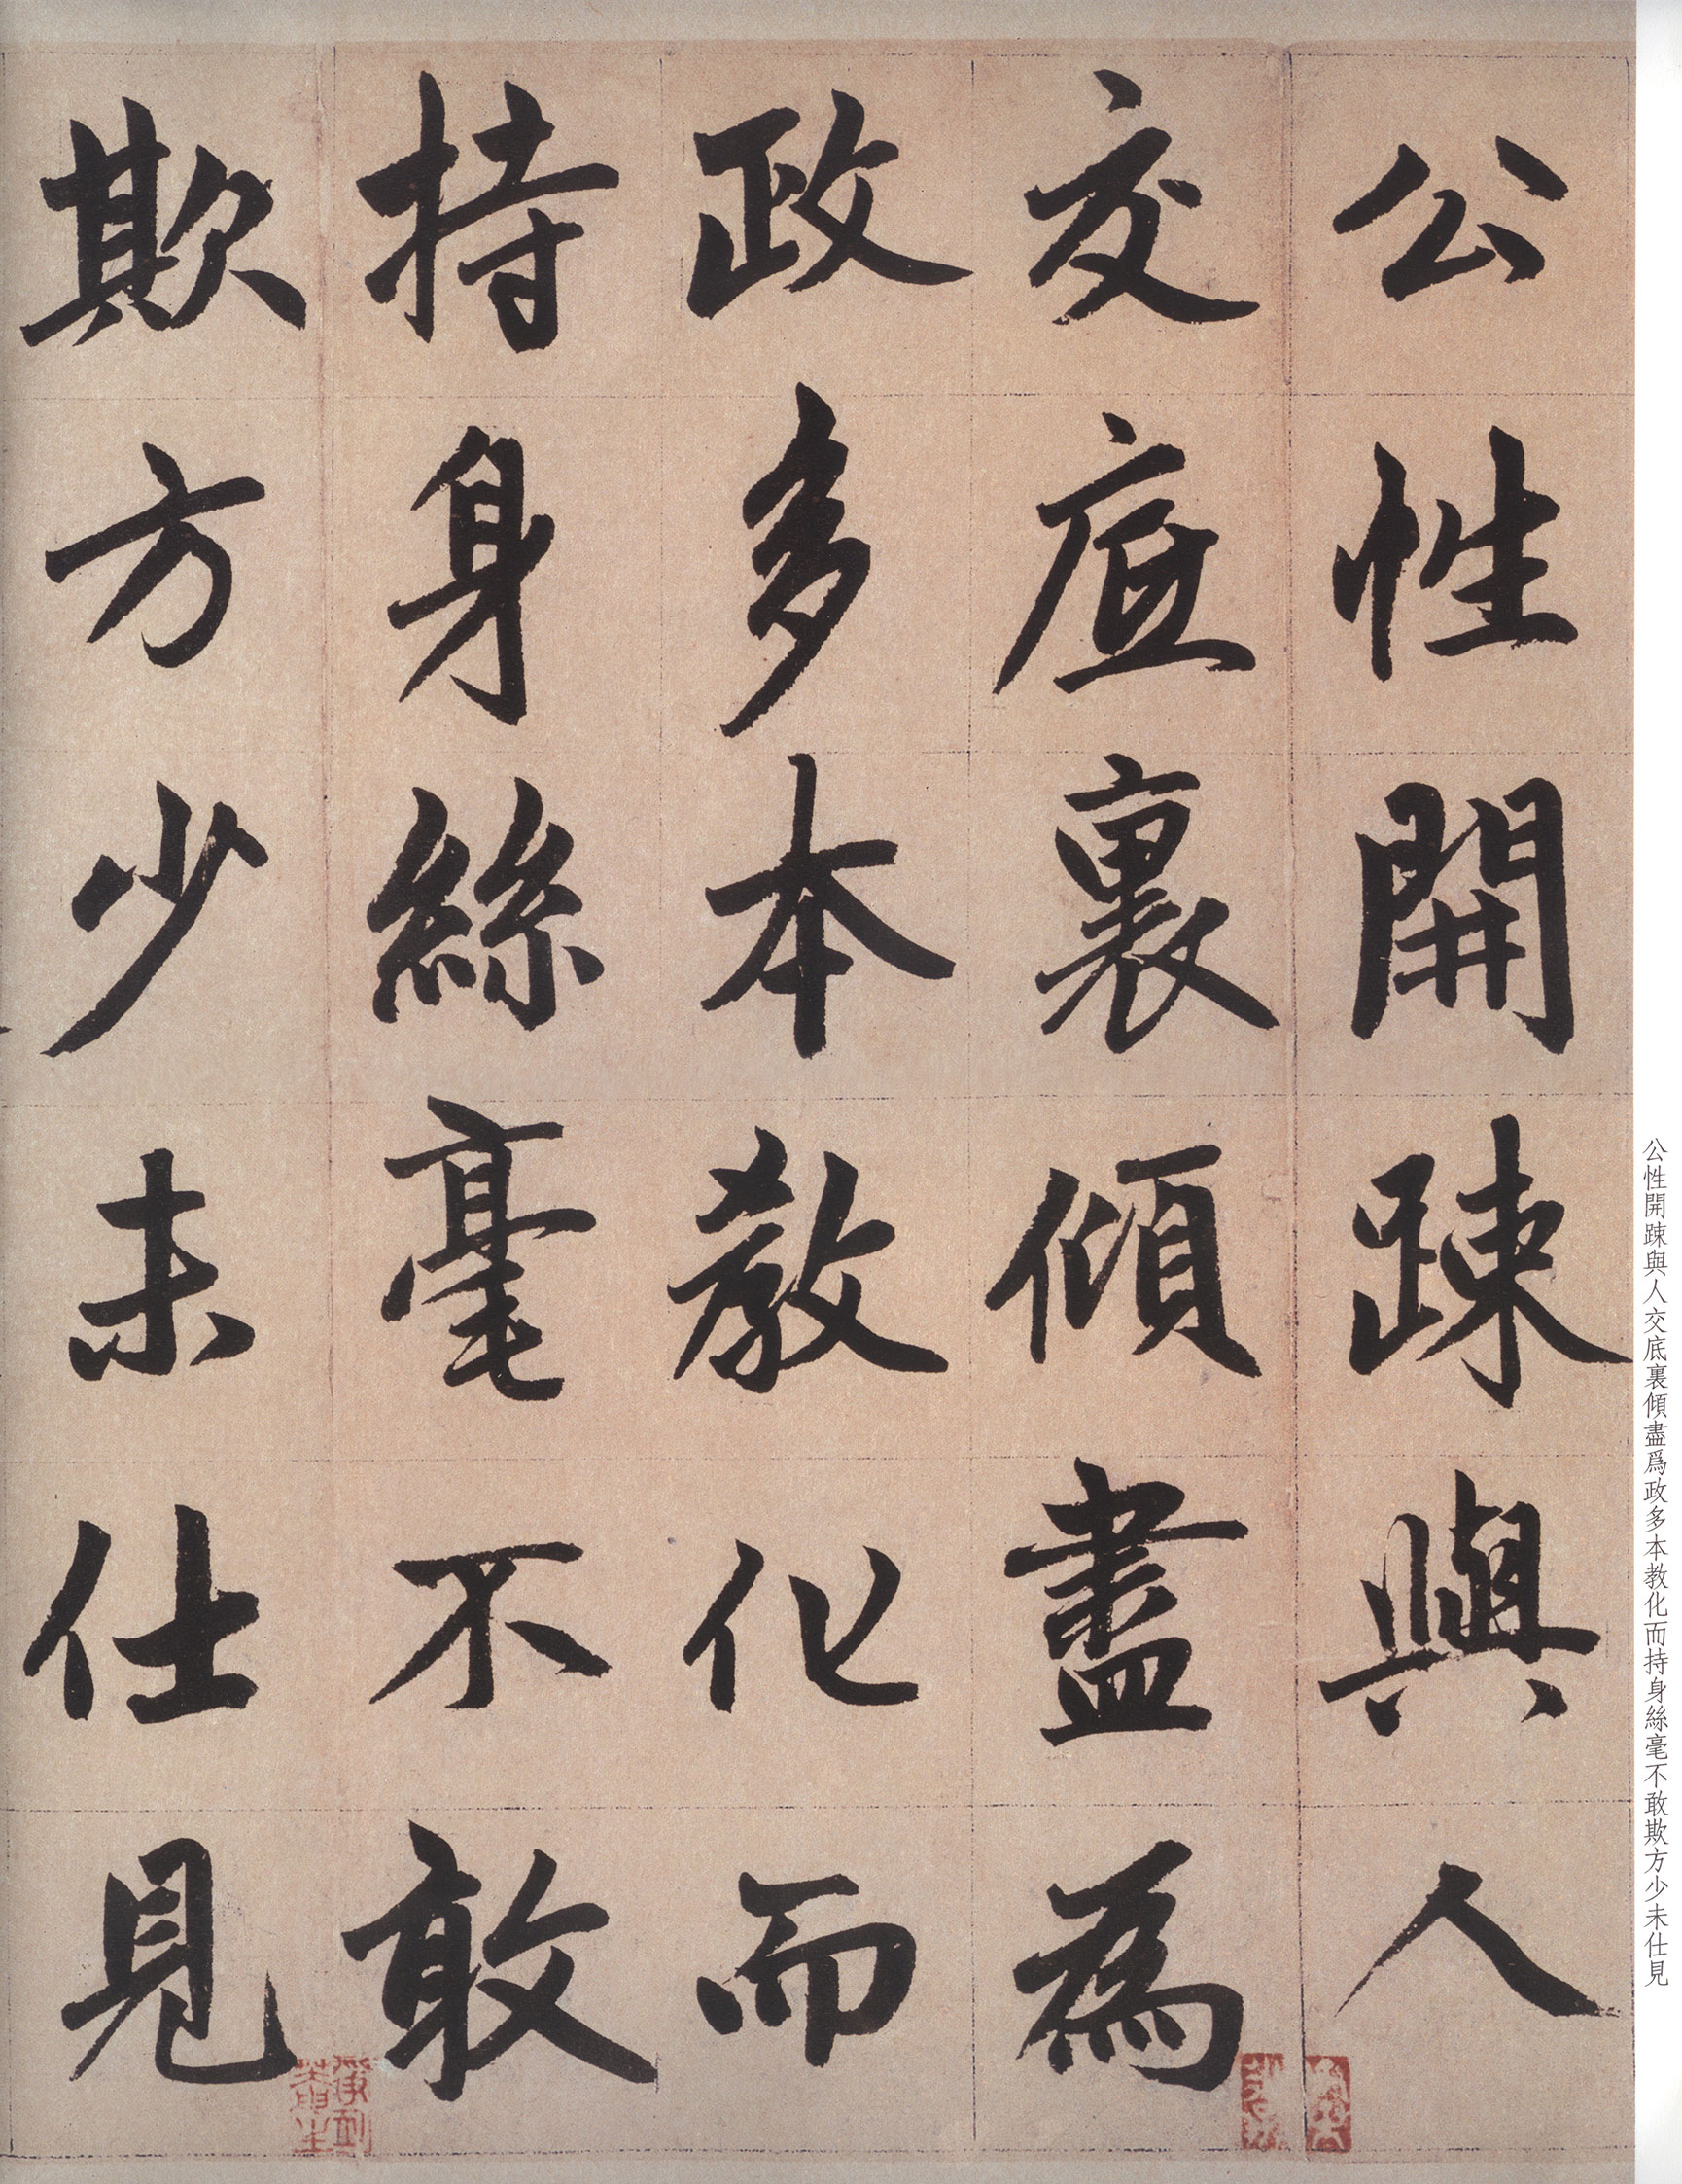 公性開踈與人
交底裏傾盡為
政多本教化而
持身絲毫不敢
欺方少未仕見
公性開踈與人交底裏傾盡爲政多本教化而持身絲毫不敢欺方少未仕見